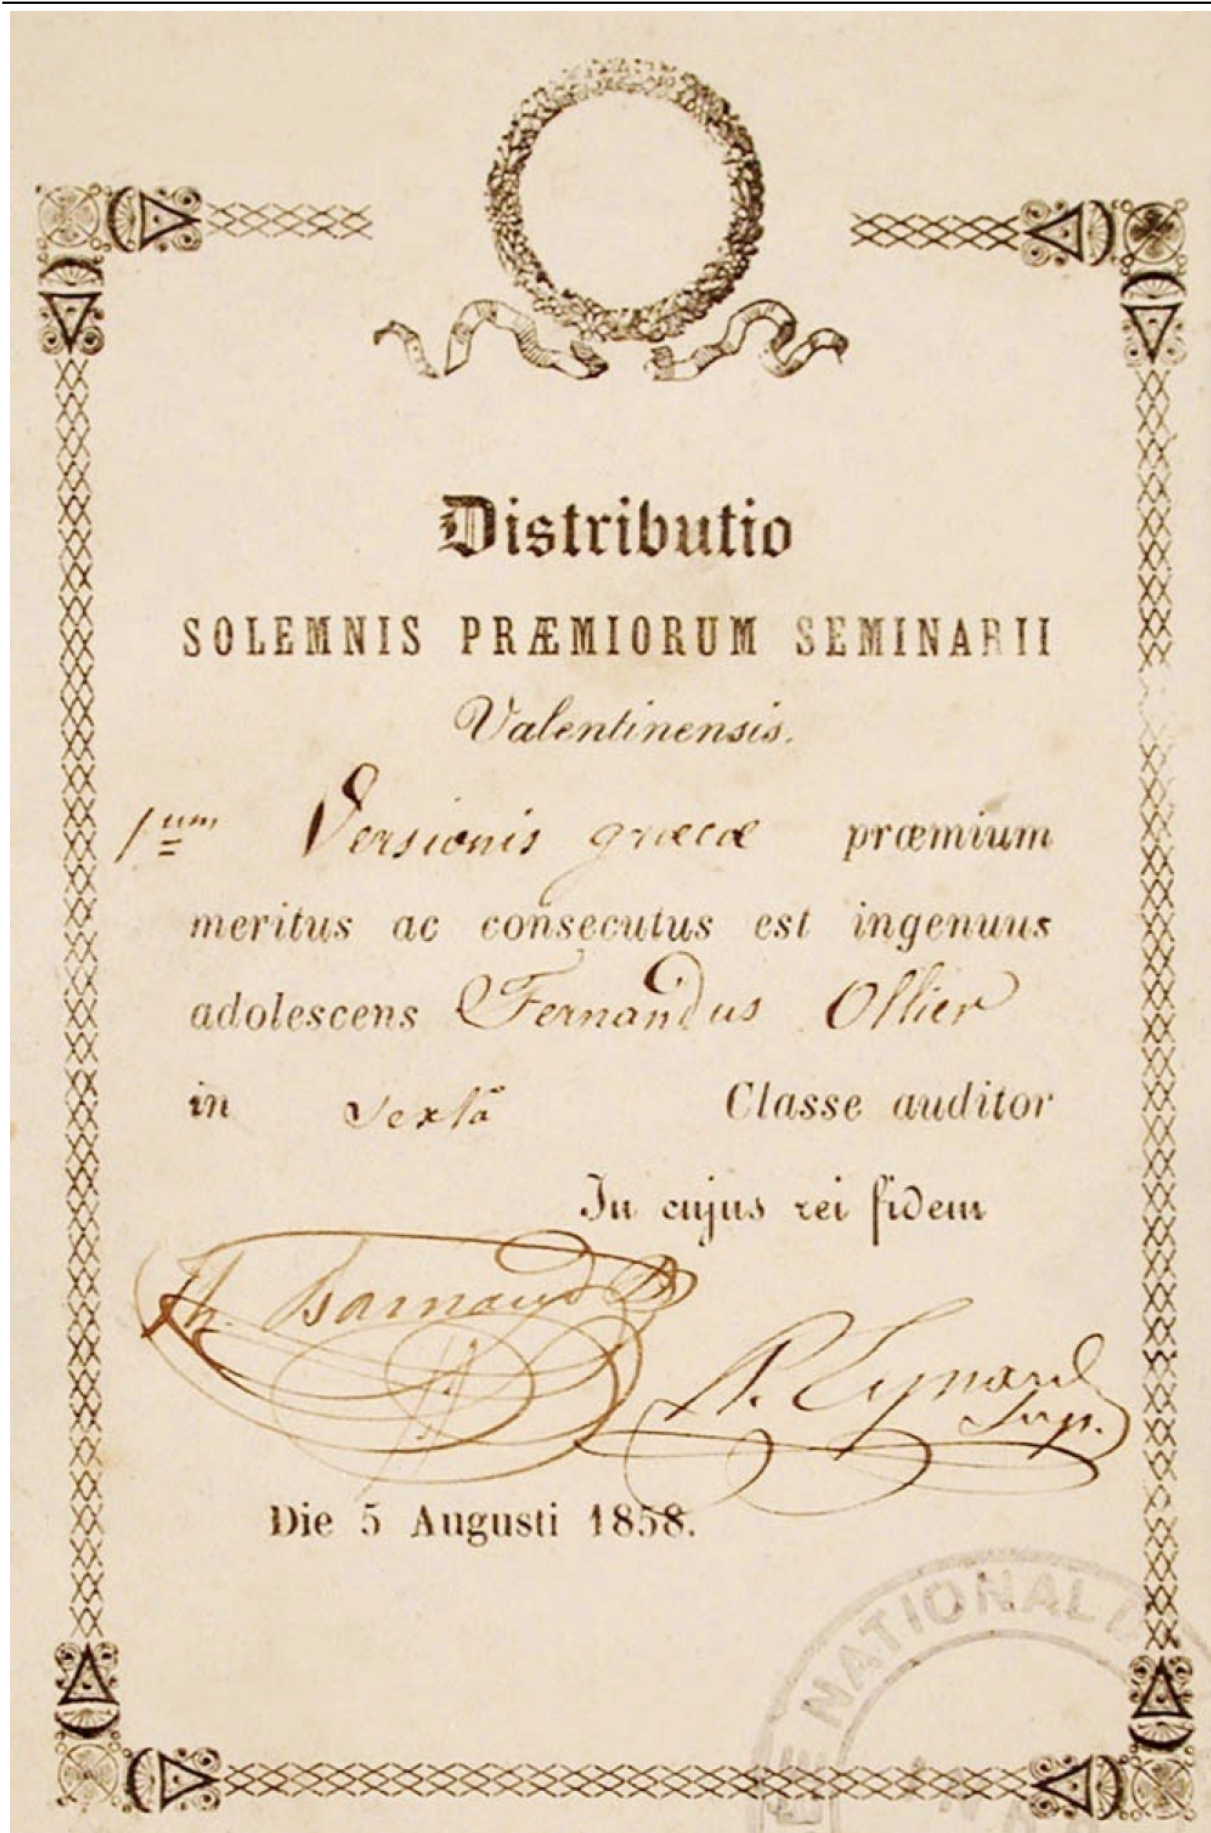 Distributio
SOLEMNIS PRÆMIORUM SEMINARII
Valentinensis.
1um Versionis græcæ præmium
meritus ac consecutus est ingenuus
adolescens Fernandus Ollier
in Sextâ Classe auditor
In cujus rei fidem
Th. Barnaud
P. Eynard
Sup.
Die 5 Augusti 1858.
NATIONAL